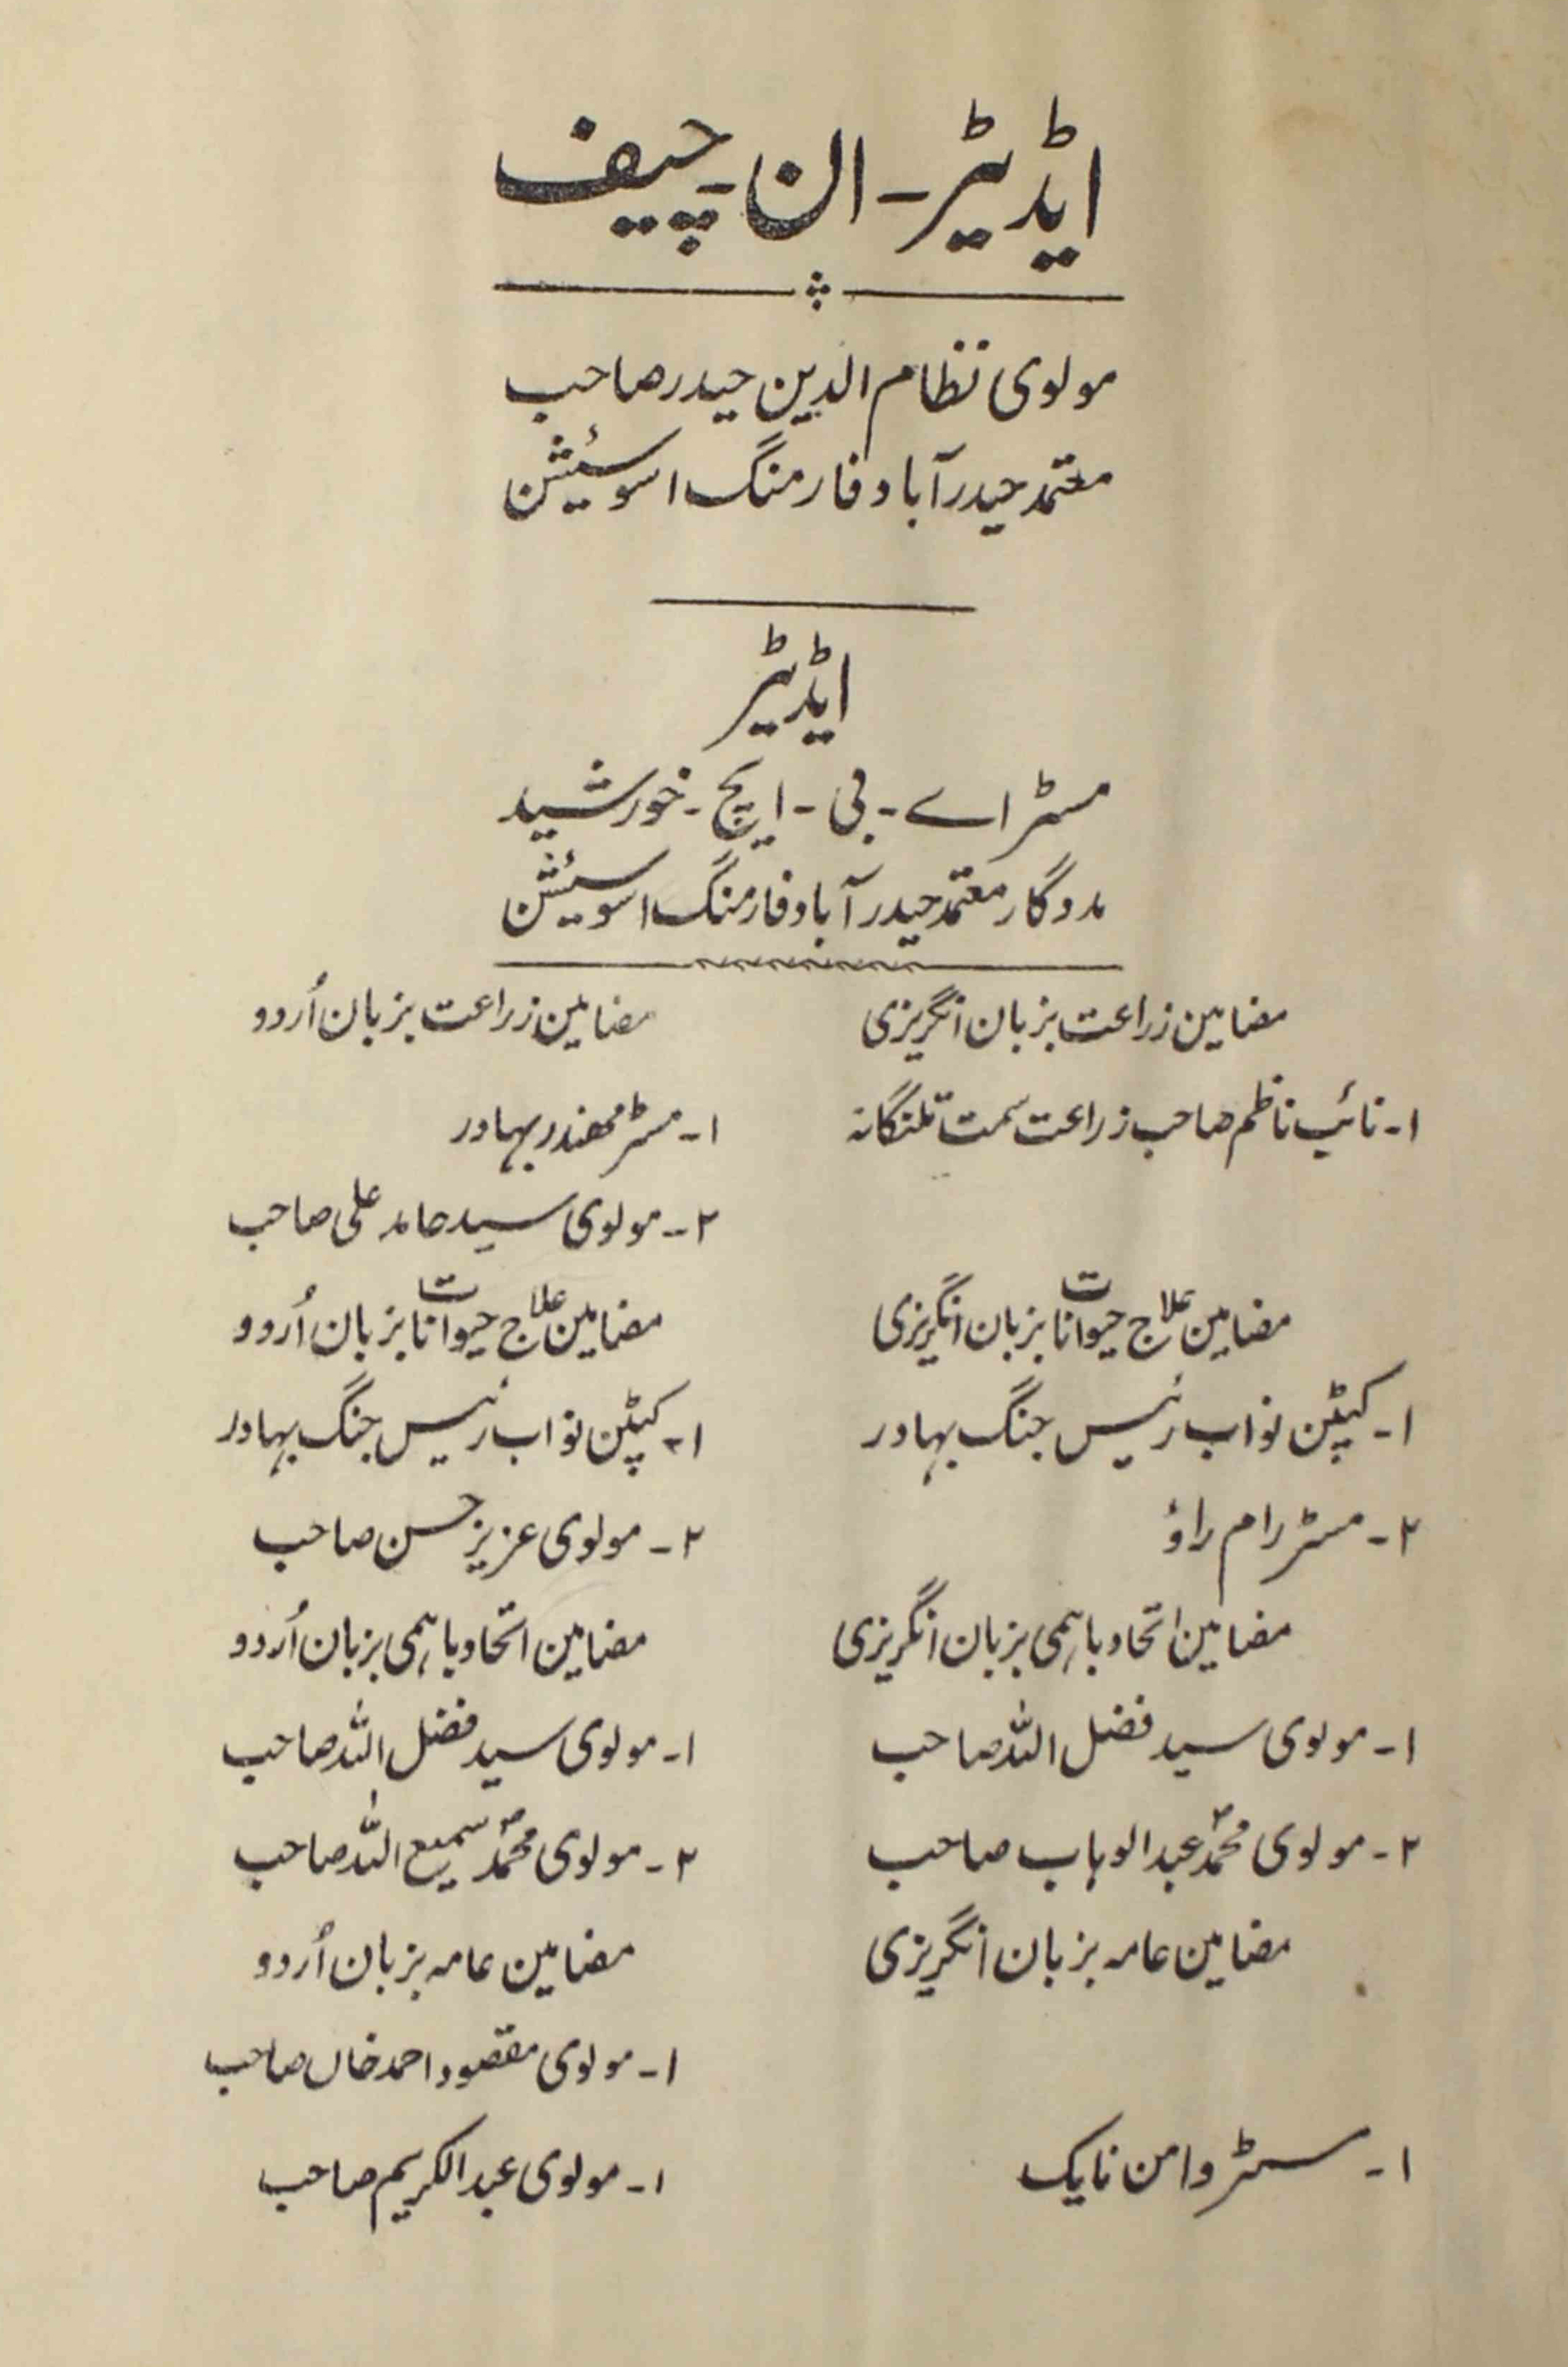 ایڈیٹر - ان - چیف
مولوی نظام الدین حیدر صاحب
معتمد حیدرآباد فارمنگ اسوسیئشن
ایڈیٹر
مسٹر اے - بی - ایچ - خورشید
مددگار معتمد حیدرآباد فارمنگ اسوسیئشن
مضامین زراعت بزبان انگریزی
۱ - نائب ناظم صاحب زراعت سمت تلنگانہ
مضامین زراعت بزبان اُردو
۱ - مسٹر مھندر بہادر
۲ - مولوی سید حامد علی صاحب
مضامین علاج حیوانات بزبان انگریزی
۱ - کیپٹن نواب رئیس جنگ بہادر
۲ - مسٹر رام راؤ
مضامین علاج حیوانات بزبان اُردو
۱ - کیپٹن نواب رئیس جنگ بہادر
۲ - مولوی عزیز حسن صاحب
مضامین اتحاد باہمی بزبان انگریزی
۱ - مولوی سید فضل اللہ صاحب
۲ - مولوی محمد عبدالوہاب صاحب
مضامین اتحاد باہمی بزبان اُردو
۱ - مولوی سید فضل اللہ صاحب
۲ - مولوی محمد سمیع اللہ صاحب
مضامین عامہ بزبان انگریزی
۱ - مسٹر وامن نایک
مضامین عامہ بزبان اُردو
۱ - مولوی مقصود احمد خاں صاحب
۱ - مولوی عبدالکریم صاحب